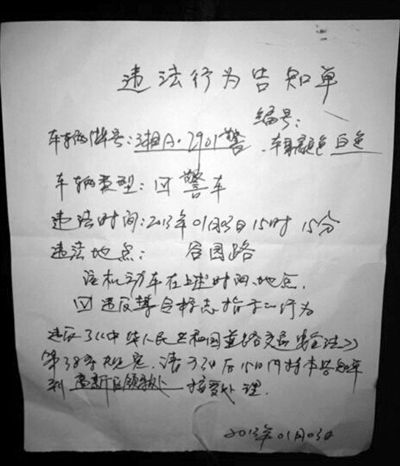 违法行为告知单
编号:
车辆牌号:湘A·2901警 .车身颜色 白色
车辆类型: 警车
违法时间:2013年01月03日15时15分
违法地点: 谷园路
该机动车在上述时间、地点,
☑违反禁令标志指示的行为
违反了《中华人民共和国道路交通安全法》
第38条规定.请于3日后15日内持本告知单
到高新区 接受处理.
2013年01月03日